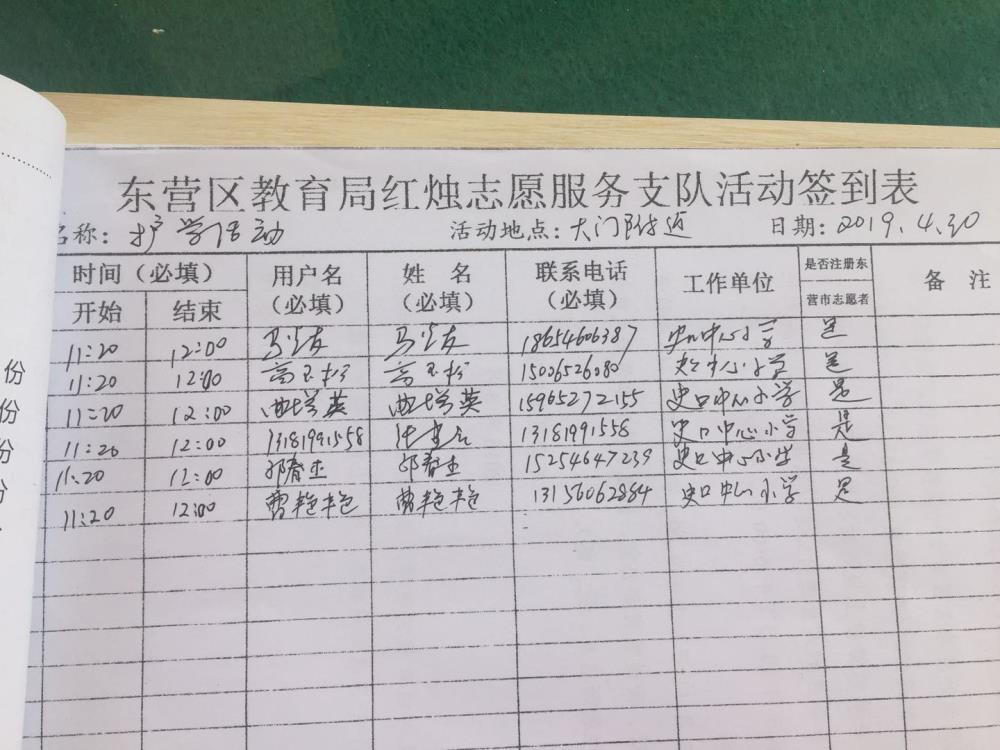 东营区教育局红烛志愿服务支队活动签到表
名称：护学活动 活动地点：大门附近 日期：2019.4.30
时间（必填） 用户名（必填） 姓 名（必填） 联系电话（必填） 工作单位 是否注册东营市志愿者 备 注
开始 结束
11:20 12:00 马 友 马 友 18654606387 史口中心小学 是
11:20 12:00 高玉 高玉 15006526080 史口中心小学 是
11:20 12:00 曲增英 曲增英 15965272155 史口中心小学 是
11:20 12:00 13181991558 13181991558 史口中心小学 是
11:20 12:00 邱春 邱春 15254647239 史口中心小学 是
11:20 12:00 曹艳艳 曹艳艳 13156062884 史口中心小学 是
份
份
份
份